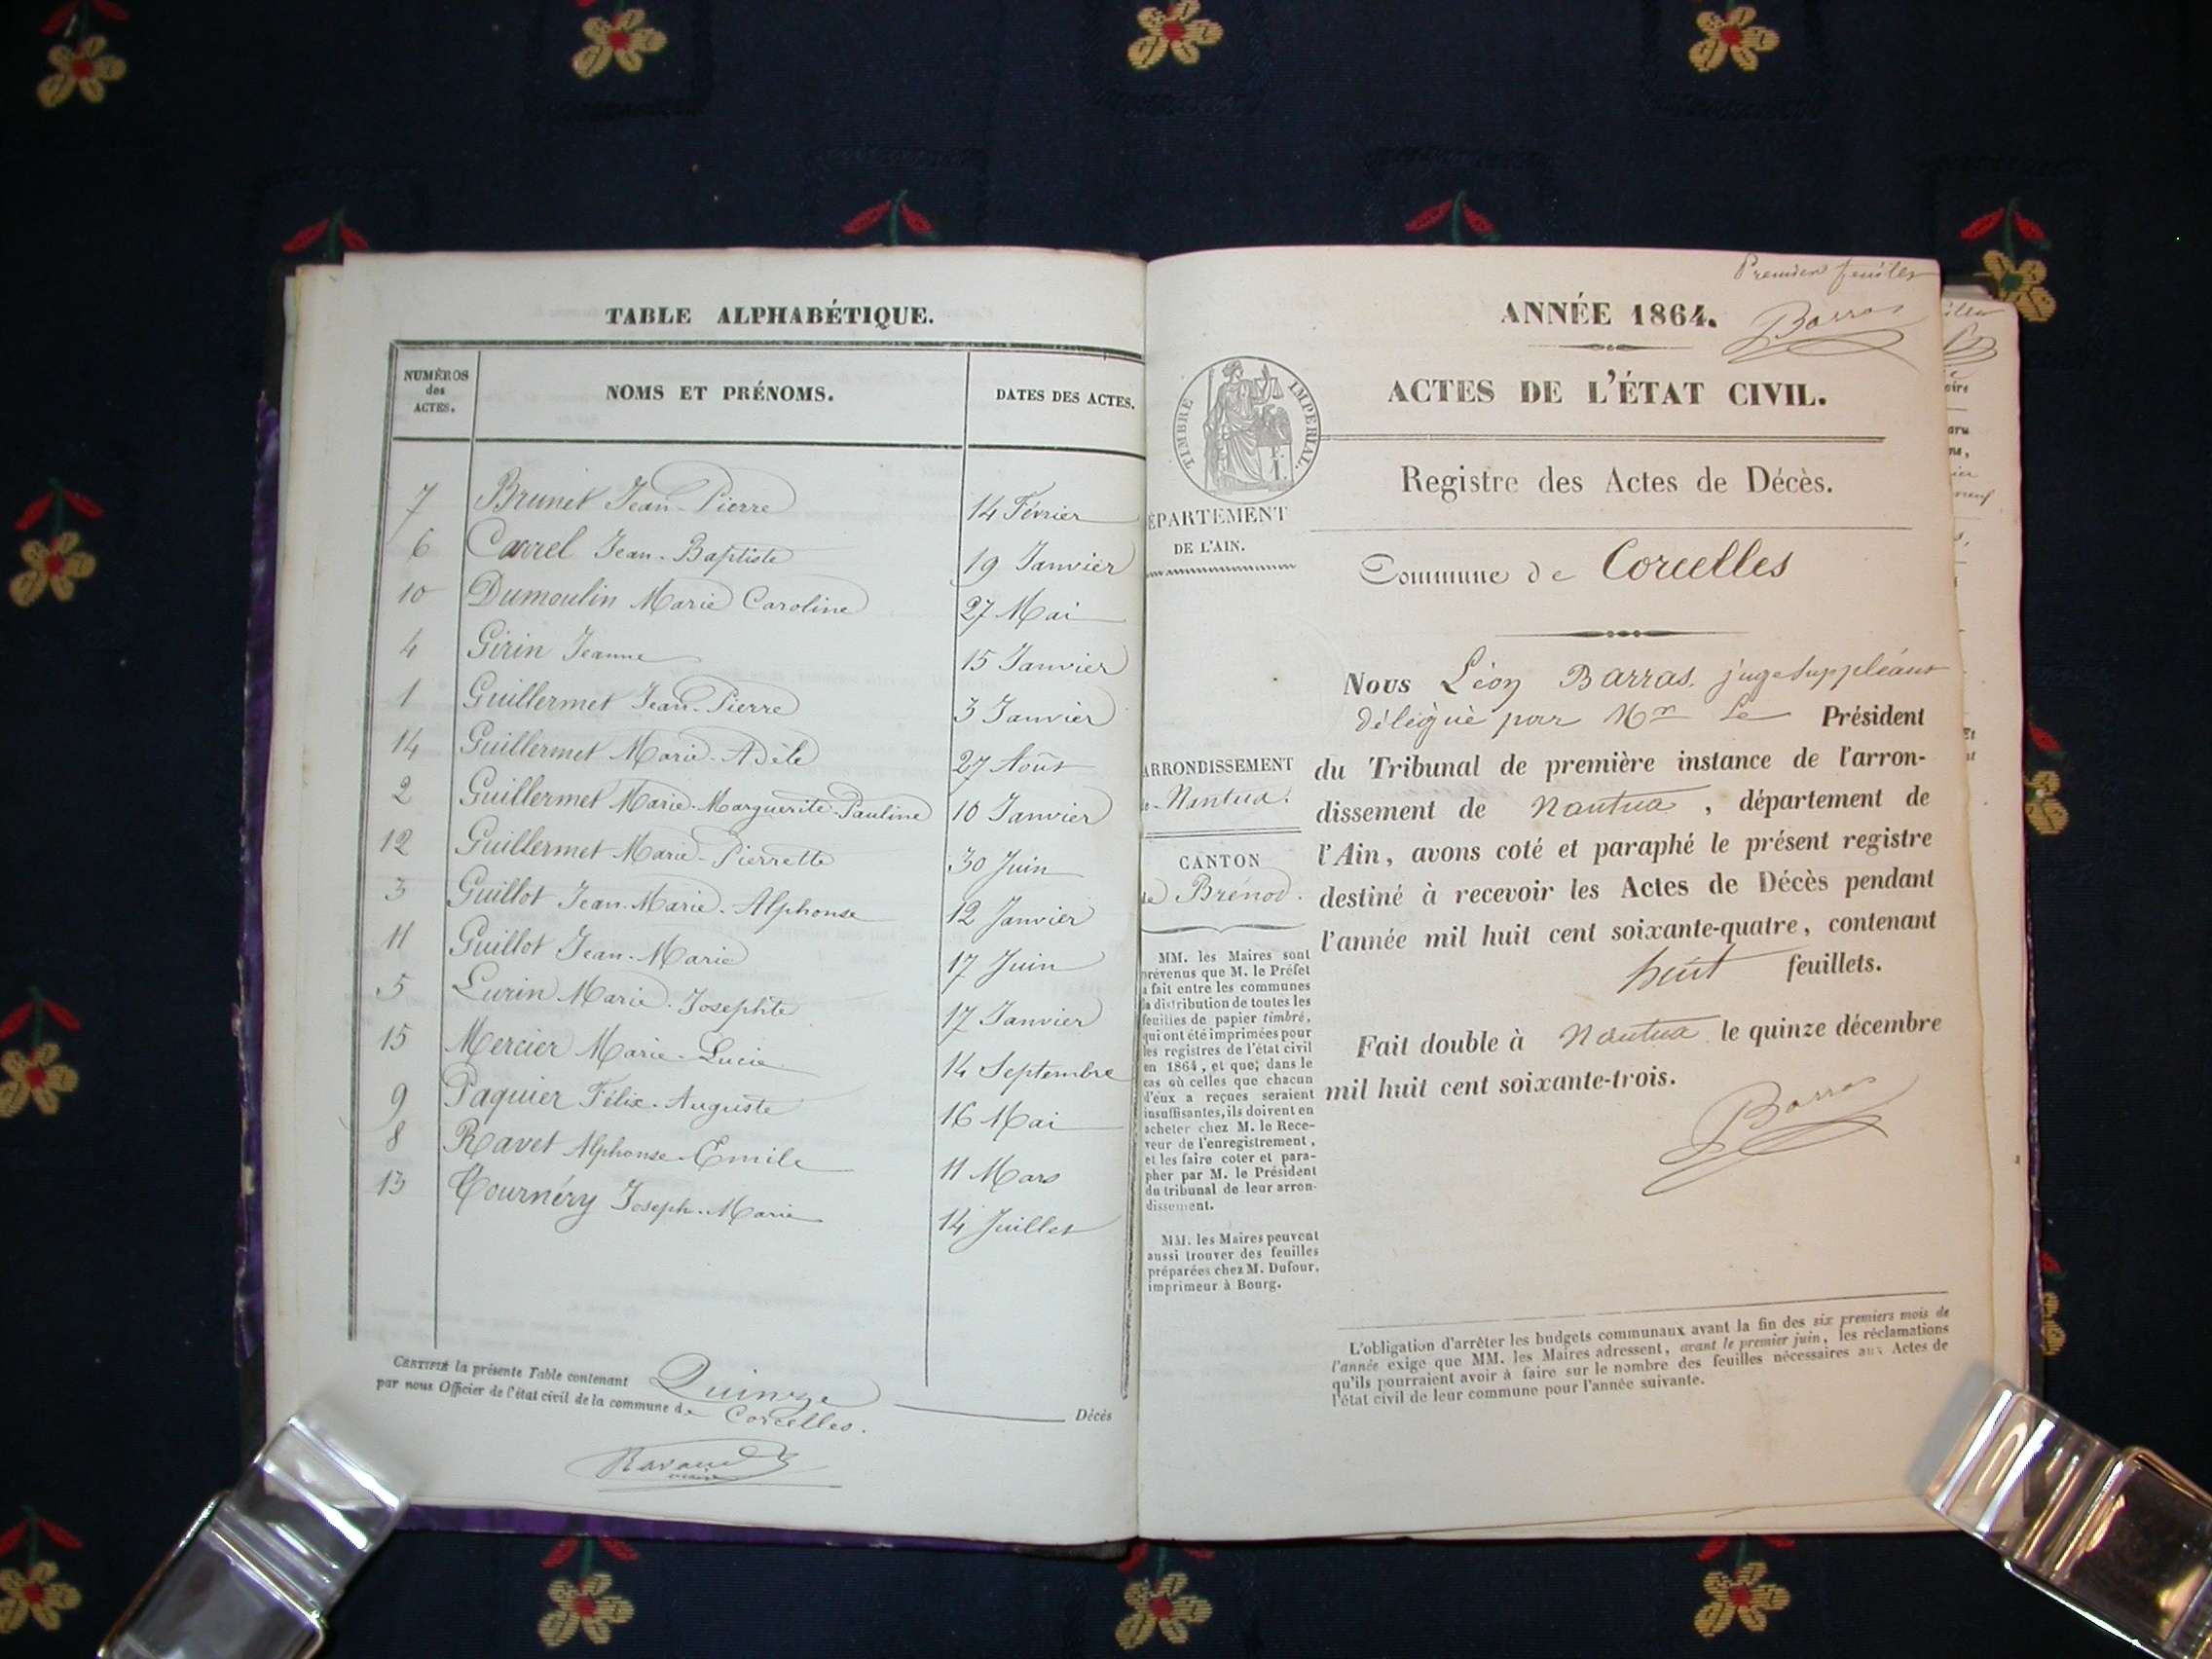 TABLE ALPHABÉTIQUE.
NUMÉROS
des
ACTES.
NOMS ET PRÉNOMS.
DATES DES ACTES.
7 Brunet Jean-Pierre 14 Février
6 Carrel Jean-Baptiste 19 Janvier
10 Dumoulin Marie Caroline 27 Mai
4 Girin Jeanne 15 Janvier
1 Guillermet Jean-Pierre 3 Janvier
14 Guillermet Marie-Adèle 27 Août
2 Guillermet Marie-Marguerite-Pauline 10 Janvier
12 Guillermet Marie-Pierrette 30 Juin
3 Guillot Jean-Marie-Alphonse 12 Janvier
11 Guillot Jean-Marie 17 Juin
5 Lurin Marie-Josephte 17 Janvier
15 Mercier Marie-Lucie 14 Septembre
9 Paquier Félix-Auguste 16 Mai
8 Ravet Alphonse-Emile 11 Mars
13 Tournéry Joseph-Marie 14 Juillet
CERTIFIÉ la présente Table contenant Quinze Décès
par nous Officier de l'état civil de la commune de Corcelles.
Premier feuillet
Barras
ANNÉE 1864.
ACTES DE L'ÉTAT CIVIL.
TIMBRE IMPÉRIAL.
Registre des Actes de Décès.
ÉPARTEMENT
DE L'AIN.
Commune de Corcelles
Nous Léon Barras, juge suppléant
délégué par Mr Le Président
du Tribunal de première instance de l'arron-
dissement de Nantua, département de
l'Ain, avons coté et paraphé le présent registre
destiné à recevoir les Actes de Décès pendant
l'année mil huit cent soixante-quatre, contenant
huit feuillets.
Fait double à Nantua le quinze décembre
mil huit cent soixante-trois.
Barras
ARRONDISSEMENT
de Nantua.
CANTON
de Brénod.
MM. les Maires sont
prévenus que M. le Préfet
a fait entre les communes
la distribution de toutes les
feuilles de papier timbré,
qui ont été imprimées pour
les registres de l'état civil
en 1864, et que, dans le
cas où celles que chacun
d'eux a reçues seraient
insuffisantes, ils doivent en
acheter chez M. le Rece-
veur de l'enregistrement,
et les faire coter et para-
pher par M. le Président
du tribunal de leur arron-
dissement.
MM. les Maires peuvent
aussi trouver des feuilles
préparées chez M. Dufour,
imprimeur à Bourg.
L'obligation d'arrêter les budgets communaux avant la fin des six premiers mois de
l'année exige que MM. les Maires adressent, avant le premier juin, les réclamations
qu'ils pourraient avoir à faire sur le nombre des feuilles nécessaires aux Actes de
l'état civil de leur commune pour l'année suivante.